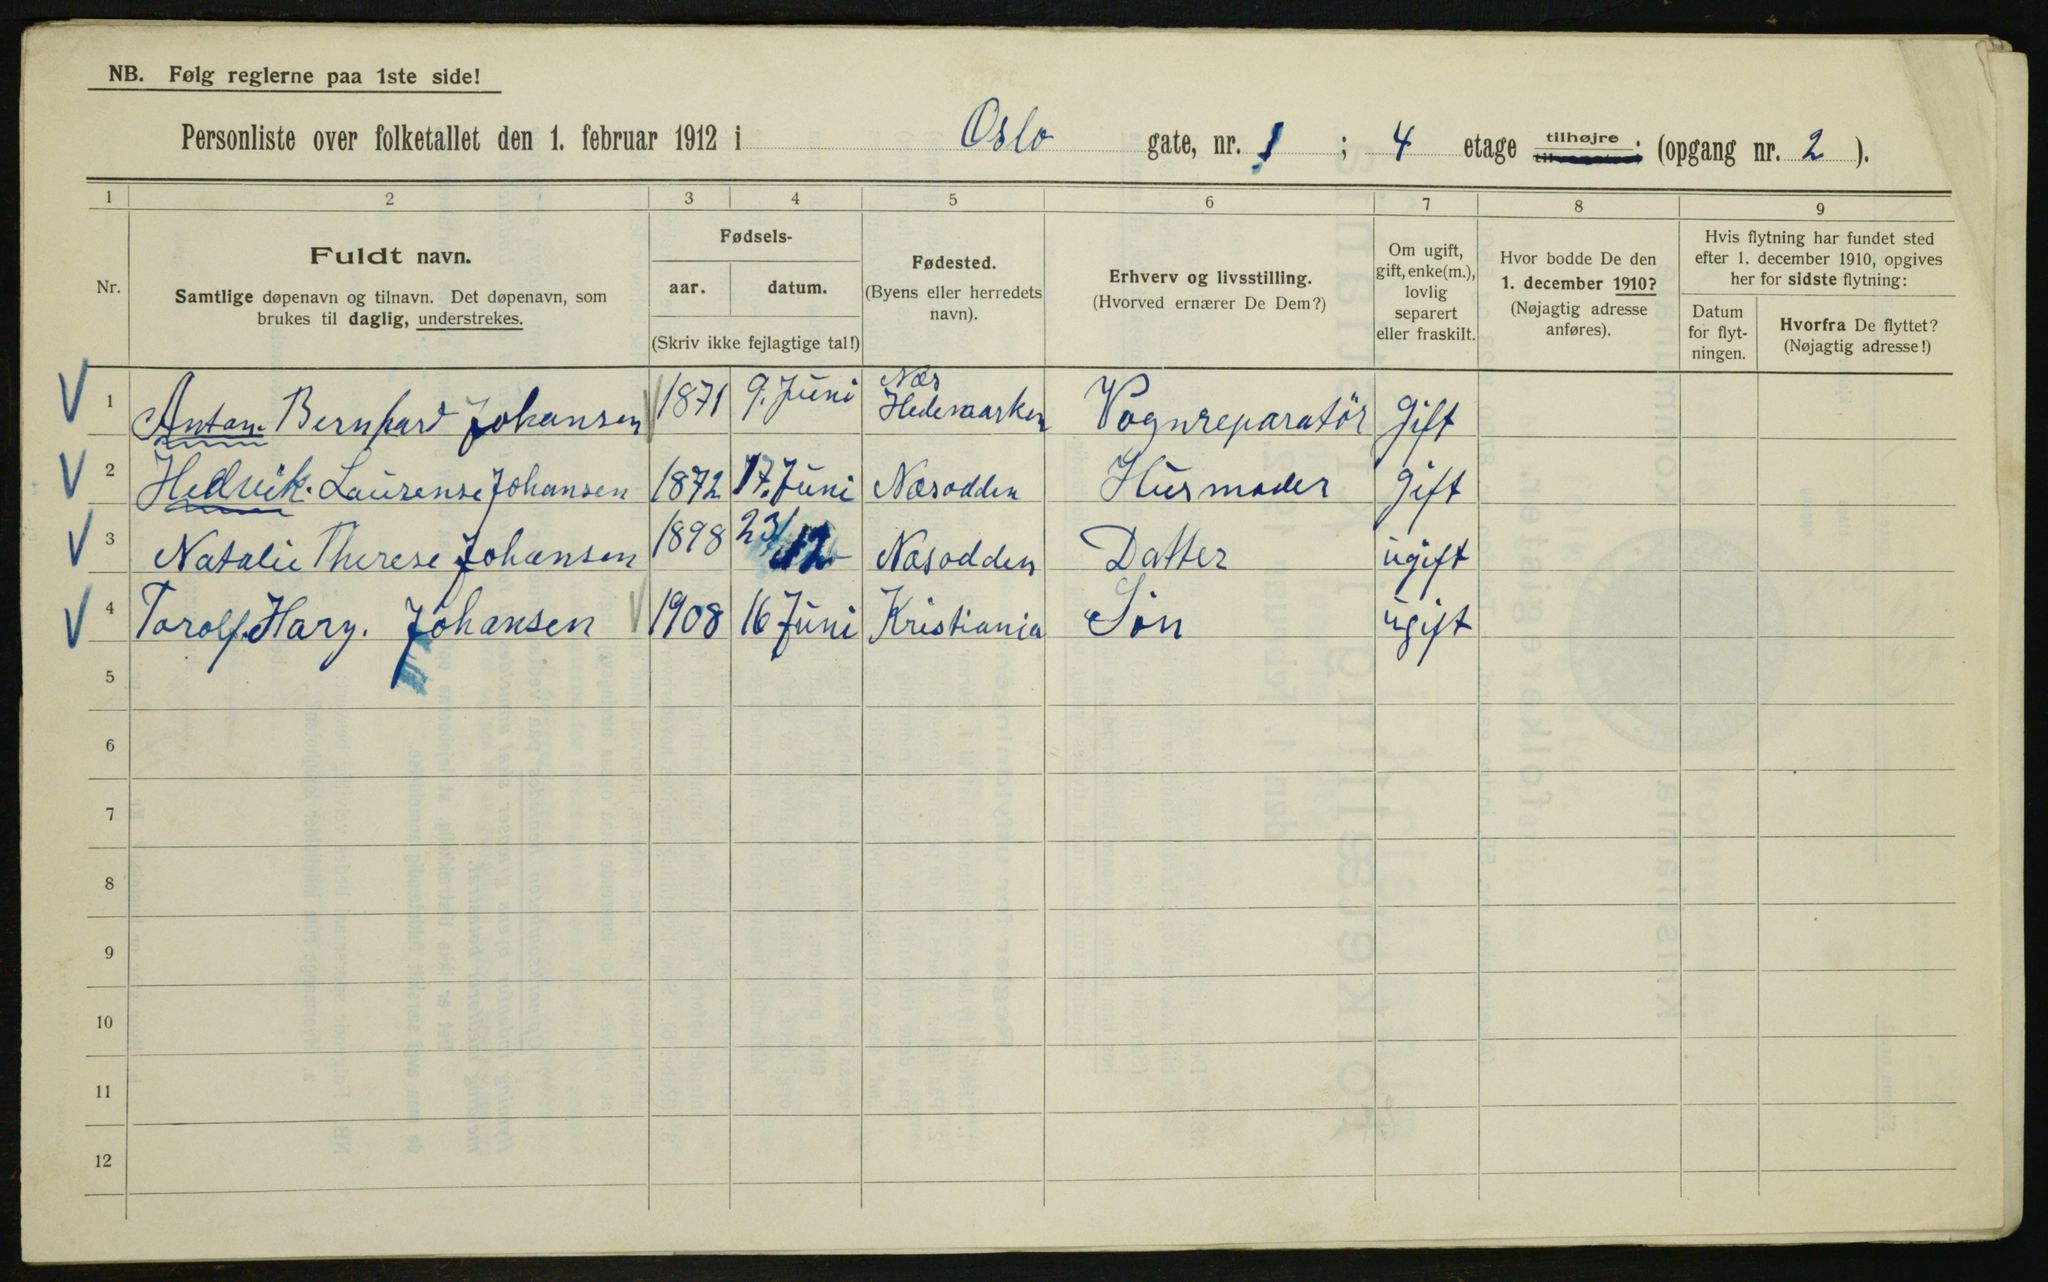 NB. Følg reglerne paa 1ste side!
Personliste over folketallet den 1. februar 1912 i Oslo gate, nr. 1 ; 4 etage tilhøjre tilvenstre. (opgang nr. 2 ).
1 2 3 4 5 6 7 8 9
Nr.
Fuldt navn.
Samtlige døpenavn og tilnavn. Det døpenavn, som
brukes til daglig, understrekes.
Fødsels-
aar. datum.
(Skriv ikke fejlagtige tal!)
Fødested.
(Byens eller herredets
navn).
Erhverv og livsstilling.
(Hvorved ernærer De Dem?)
Om ugift,
gift, enke(m.),
lovlig
separert
eller fraskilt.
Hvor bodde De den
1. december 1910?
(Nøjagtig adresse
anføres).
Hvis flytning har fundet sted
efter 1. december 1910, opgives
her for sidste flytning:
Datum
for flyt-
ningen.
Hvorfra De flyttet?
(Nøjagtig adresse!)
1 Anton Bernhard Johansen 1871 9. Juni Næs Hedemarken Vognreparatör Gift
2 Hedvik. Laurense Johansen 1872 17. Juni Næsodden Husmoder Gift
3 Natalie Therese Johansen 1898 23/12 Næsodden Datter ugift
4 Torolf. Hary. Johansen 1908 16 Juni Kristiania Sön ugift
5
6
7
8
9
10
11
12